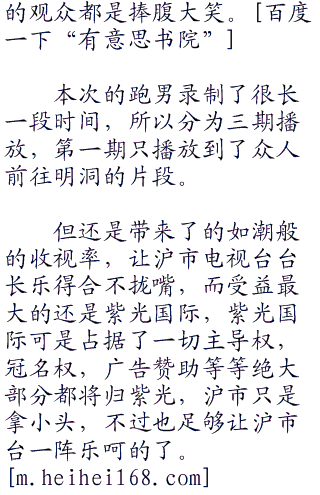 的观众都是捧腹大笑。[百度
一下“有意思书院”]
本次的跑男录制了很长
一段时间，所以分为三期播
放，第一期只播放到了众人
前往明洞的片段。
但还是带来了的如潮般
的收视率，让沪市电视台台
长乐得合不拢嘴，而受益最
大的还是紫光国际，紫光国
际可是占据了一切主导权，
冠名权，广告赞助等等绝大
部分都将归紫光，沪市只是
拿小头，不过也足够让沪市
台一阵乐呵的了。
[m.heihei168.com]